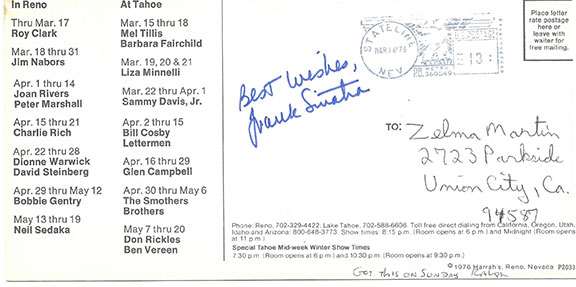 In Reno
Thru Mar. 17
Roy Clark
Mar. 18 thru 31
Jim Nabors
Apr. 1 thru 14
Joan Rivers
Peter Marshall
Apr. 15 thru 21
Charlie Rich
Apr. 22 thru 28
Dionne Warwick
David Steinberg
Apr. 29 thru May 12
Bobbie Gentry
May 13 thru 19
Neil Sedaka
At Tahoe
Mar. 15 thru 18
Mel Tillis
Barbara Fairchild
Mar. 19, 20 & 21
Liza Minnelli
Mar. 22 thru Apr. 1
Sammy Davis, Jr.
Apr. 2 thru 15
Bill Cosby
Lettermen
Apr. 16 thru 29
Glen Campbell
Apr. 30 thru May 6
The Smothers
Brothers
May 7 thru 20
Don Rickles
Ben Vereen
Best Wishes,
Frank Sinatra
STATELINE
NEV.
13
Place letter
rate postage
here or
leave with
waiter for
free mailing.
TO: Zelma Martin
2723 Parkside
Union City, Ca.
94587
Phone: Reno, 702-329-4422. Lake Tahoe, 702-588-6606. Toll free direct dialing from California, Oregon, Utah,
Idaho and Arizona: 800-648-3773. Show times: 8:15 p.m. (Room opens at 6 p.m.) and Midnight (Room opens
at 11 p.m.)
Special Tahoe Mid-week Winter Show Times
7:30 p.m. (Room opens at 6 p.m.) and 10:30 p.m. (Room opens at 9:30 p.m.)
© 1976 Harrah's, Reno, Nevada P2033
GOT THIS ON SUNDAY